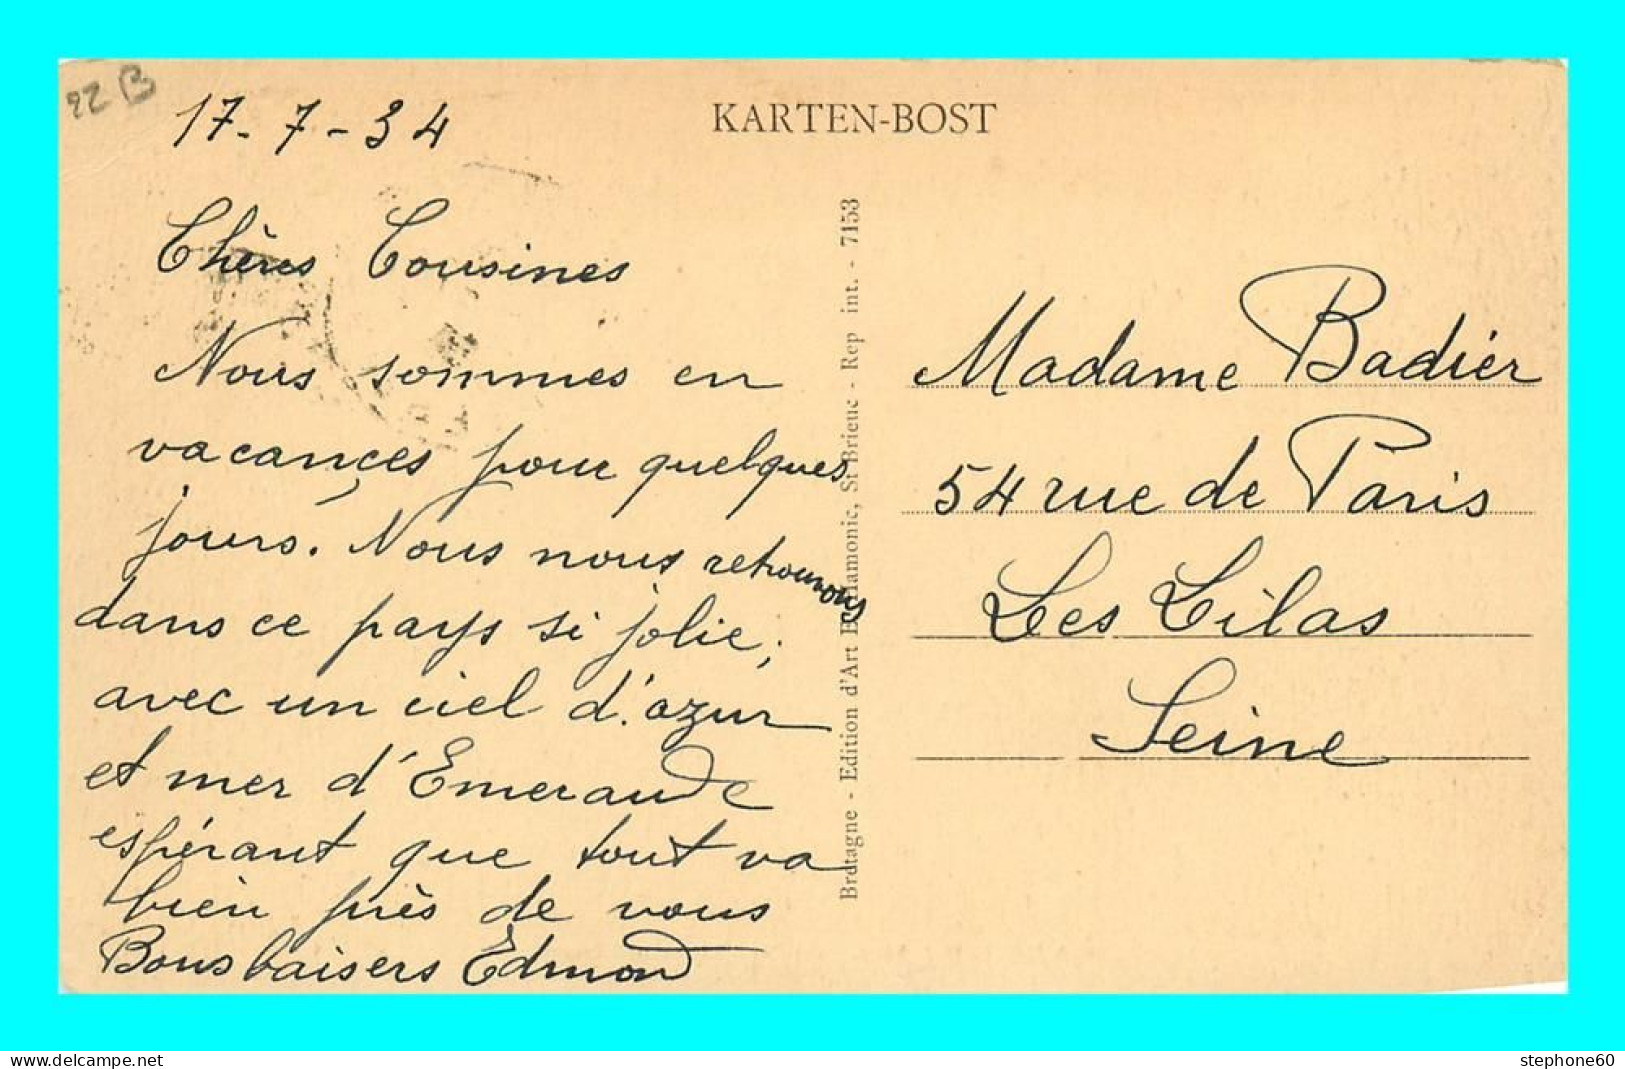 22 B
17-7-34
KARTEN-BOST
Chères Cousines
Nous sommes en
vacançes pour quelques
jours. Nous nous retrouvons
dans ce pays si jolie,
avec un ciel d'azur
et mer d'Emeraude
espérant que tout va
bien près de vous
Bons baisers Edmond
Bretagne - Edition d'Art Hamonic, St Brieuc - Rep int. - 7153
Madame Badier
54 rue de Paris
Les Lilas
Seine
www.delcampe.net
stephone60